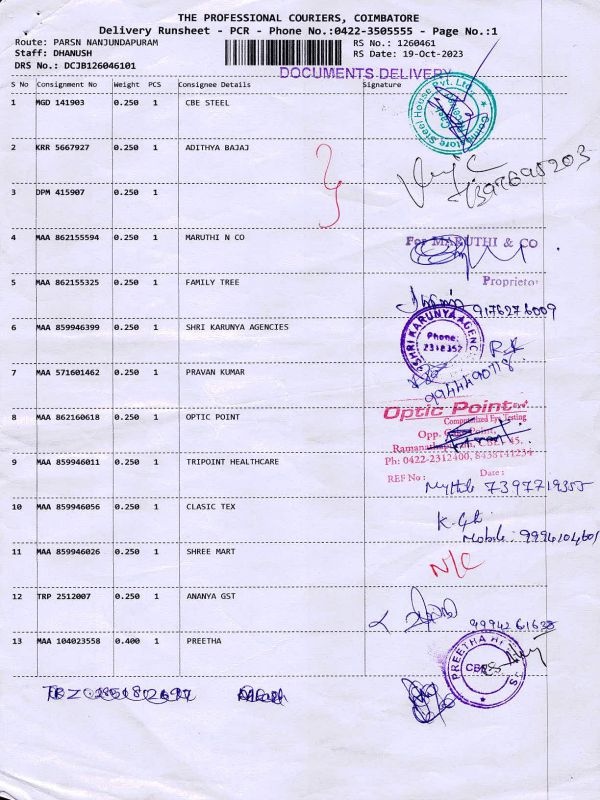 THE PROFESSIONAL COURIERS, COIMBATORE
Delivery Runsheet - PCR - Phone No.:0422-3505555 - Page No.:1
Route: PARSN NANJUNDAPURAM
RS No.: 1260461
Staff: DHANUSH
RS Date: 19-Oct-2023
DRS No.: DCJB126046101
DOCUMENTS DELIVERY
S No Consignment No Weight PCS Consignee Details Signature
1 MGD 141903 0.250 1 CBE STEEL
Coimbatore Steel House Pvt. Ltd.
2 KRR 5667927 0.250 1 ADITHYA BAJAJ
3 DPM 415907 0.250 1
7397695203
4 MAA 862155594 0.250 1 MARUTHI N CO
For MARUTHI & CO
Proprietor
5 MAA 862155325 0.250 1 FAMILY TREE
9176276009
6 MAA 859946399 0.250 1 SHRI KARUNYA AGENCIES
SHRI KARUNYA AGENC
Phone:
2312352
7 MAA 571601462 0.250 1 PRAVAN KUMAR
8 MAA 862160618 0.250 1 OPTIC POINT
Optic Point
Computerized Eye Testing
Opp.
Ph: 0422-2312400, 8438141234
REF No: Date:
9 MAA 859946011 0.250 1 TRIPOINT HEALTHCARE
7397719355
10 MAA 859946056 0.250 1 CLASIC TEX
Mobile: 9994104601
11 MAA 859946026 0.250 1 SHREE MART
N/C
12 TRP 2512007 0.250 1 ANANYA GST
9994261638
13 MAA 104023558 0.400 1 PREETHA
PREETHA
CBE